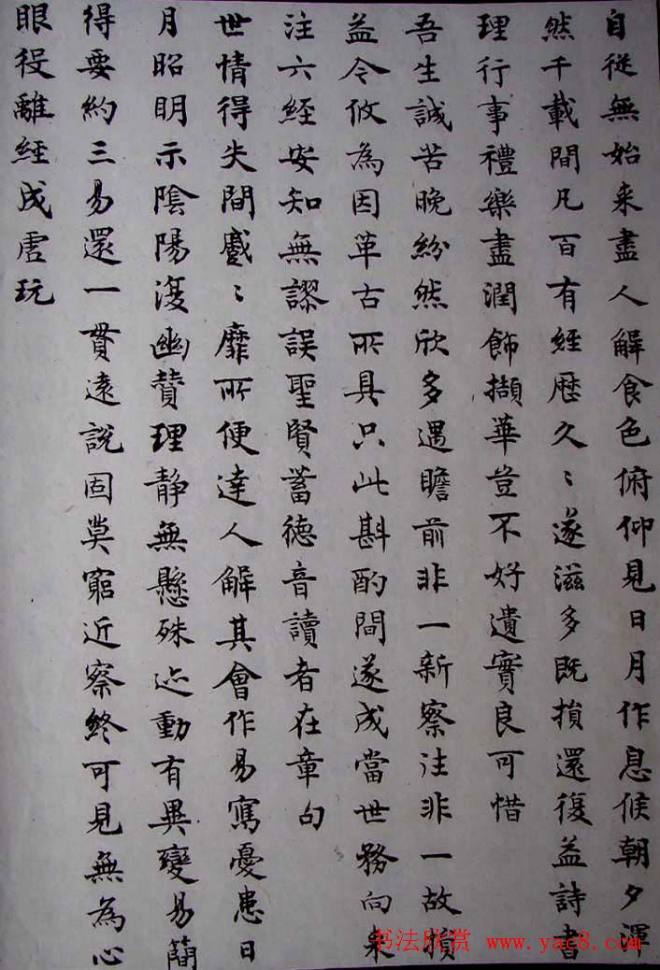 自從無始来盡人解食色俯仰見日月作息候朝夕渾
然千載間凡百有經歷久〻遂滋多既損還復益詩書
理行事禮樂盡潤飾擷華豈不好遺實良可惜
吾生誠苦晚紛然欣多遇瞻前非一新察往非一故損
益令攸為因革古所具只此斟酌間遂成當世務向来
注六經安知無謬誤聖賢蓄德音讀者在章句
世情得失間蹙〻靡所便達人解其會作易寫憂患日
月昭明示陰陽漫幽贊理静無懸殊迹動有異變易簡
得要約三易還一貫遠說固莫窮近察終可見無為心
眼役離經成虛玩
书法欣赏 www.yac8.com